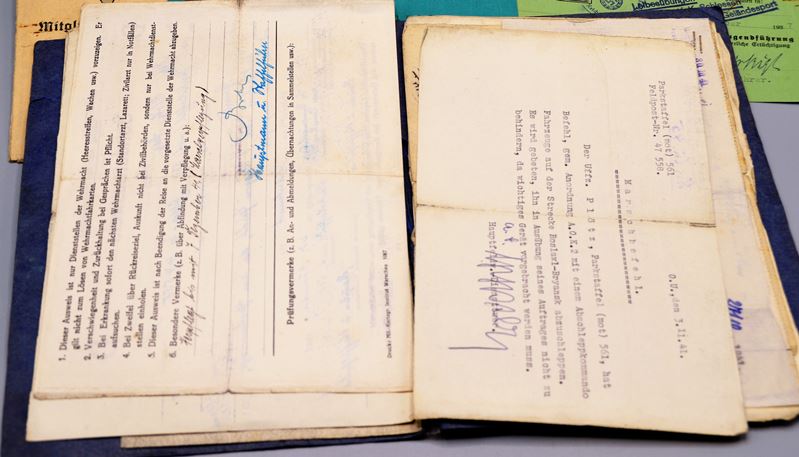 Mitgl
1. Dieser Ausweis ist nur Dienststellen der Wehrmacht (Heeresstreifen, Wachen usw.) vorzuzeigen. Er
gilt nicht zum Lösen von Wehrmachtfahrkarten.
2. Verschwiegenheit und Zurückhaltung bei Gesprächen ist Pflicht.
3. Bei Erkrankung sofort den nächsten Wehrmachtarzt (Standortarzt, Lazarett; Zivilarzt nur in Notfällen)
aufsuchen.
4. Bei Zweifel über Rückreiseziel, Auskunft nicht bei Zivilbehörden, sondern nur bei Wehrmachtdienst-
stellen einholen.
5. Dieser Ausweis ist nach Beendigung der Reise an die vorgesetzte Dienststelle der Wehrmacht abzugeben.
6. Besondere Vermerke (z. B. über Abfindung mit Verpflegung u. a.):
Verpflegt bis mit 7.
Hauptmann u.
Prüfungsvermerke (z. B. An- und Abmeldungen, Übernachtungen in Sammelstellen usw.):
Parkstaffel (mot) 561
Feldpost-Nr. 47 558.
O.U., den 3.11.41.
Marschbefehl.
Der Uffz. Plötz, Parkstaffel (mot) 561, hat
Befehl, gem. Anordnung A.O.K.2 mit einem Abschleppkommando
Fahrzeuge auf der Strecke Roslawl-Brjansk abzuschleppen.
Es wird gebeten, ihn in Ausübung seines Auftrages nicht zu
behindern, da wichtiges Gerät vorgebracht werden muss.
Leibesübungen
Schlesien
Geländesport